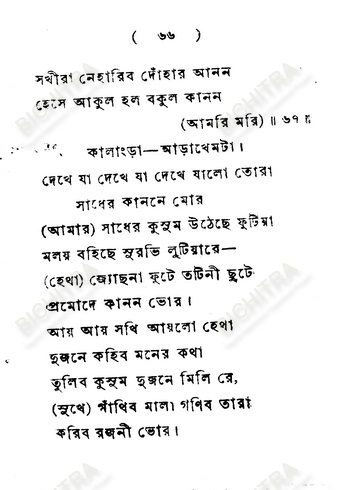 ( ৬৬ )
সখীরা নেহারিব দোঁহার আনন
হেসে আকুল হল বকুল কানন
(আমরি মরি) ॥ ৬৭ ॥
কালাংড়া—আড়াখেমটা।
দেখে যা দেখে যা দেখে যালো তোরা
সাধের কাননে মোর
(আমার) সাধের কুসুম উঠেছে ফুটিয়া
মলয় বহিছে সুরভি লুটিয়ারে—
(হেথা) জ্যোছনা ফুটে তটিনী ছুটে
প্রমোদে কানন ভোর।
আয় আয় সখি আয়লো হেথা
দুজনে কহিব মনের কথা
তুলিব কুসুম দুজনে মিলি রে,
(সুখে) গাঁথিব মালা গণিব তারা
করিব রজনী ভোর।
BICHITRA
BICHITRA
BICHITRA
BICHITRA
BICHITRA